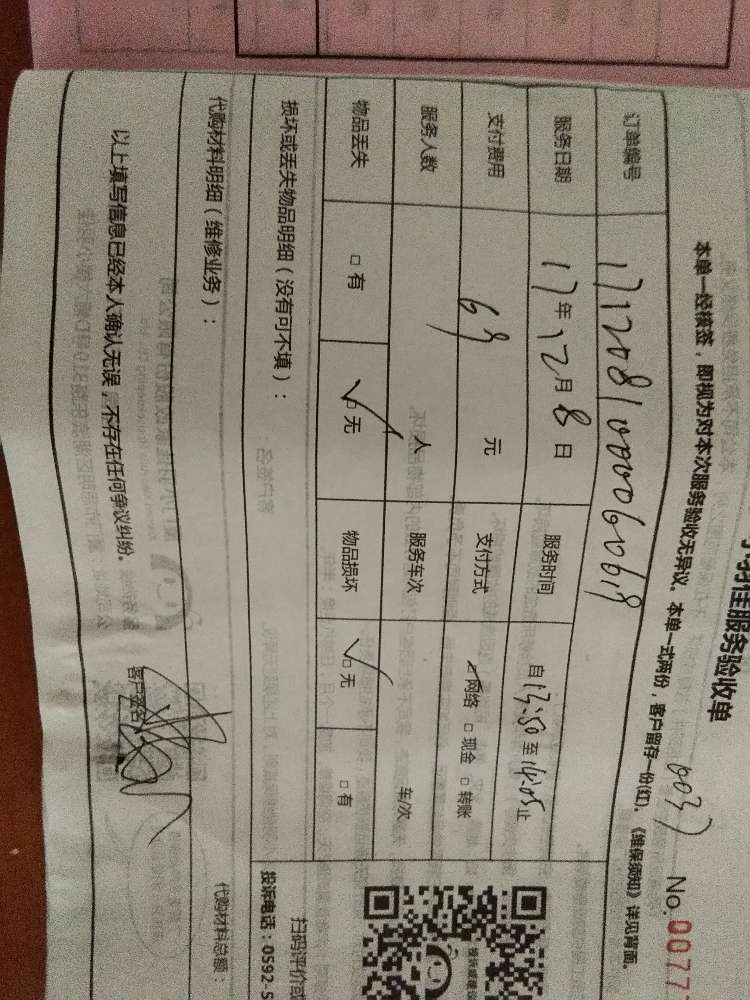 佳服务验收单
0037 No. 0077
本单一经核签，即视为对本次服务验收无异议。本单一式两份，客户留存一份(红)。《维保须知》详见背面。
订单编号 17120810000060619
服务日期 17年12月8日 服务时间 自13:50至14:05止
支付费用 69 元 支付方式 ☑网络 □现金 □转账
服务人数 人 服务车次 车/次
物品丢失 □有 ☑无 物品损坏 ☑无 □有
损坏或丢失物品明细（没有可不填）：
扫码评价或
投诉电话：0592-5
代购材料明细（维修业务）：
代购材料总额：
以上填写信息已经本人确认无误，不存在任何争议纠纷。
客户签名